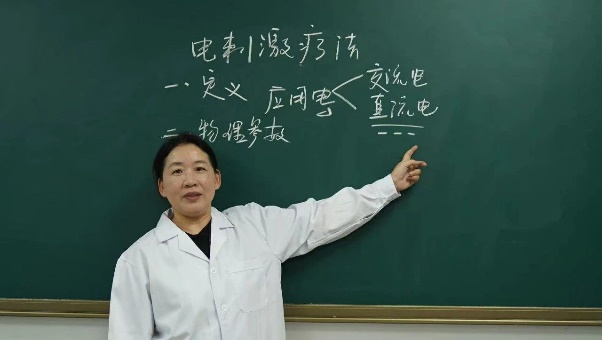 电刺激疗法
一、定义 应用电
交流电
直流电
二、物理参数